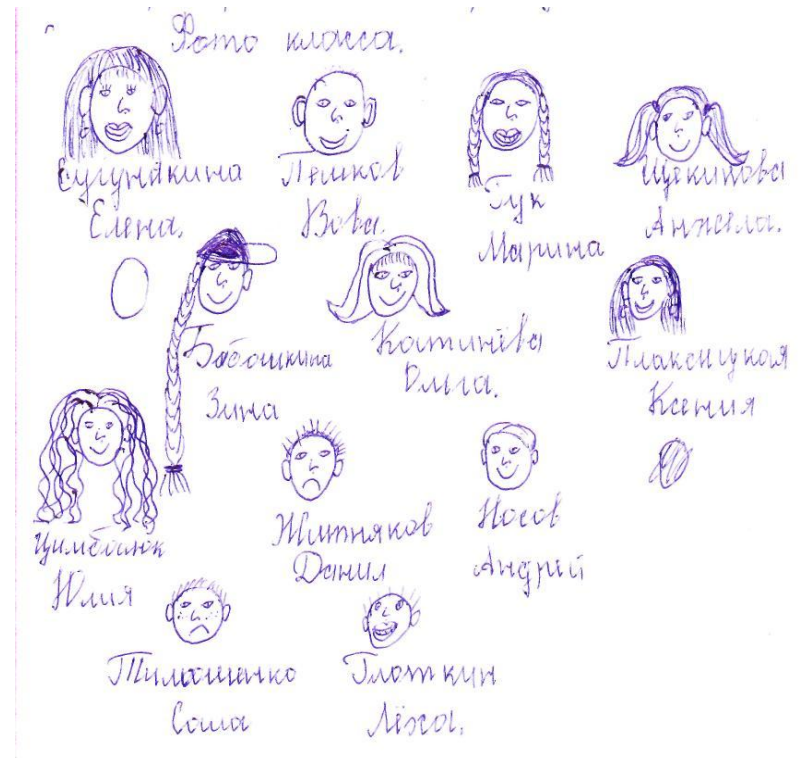 Фото класса.
Сугундкина
Елена.
Пешков
Вова.
Гук
Марина
Щекинова
Анжела.
Бабошкина
Зина
Катинёва
Ольга.
Плаксицкая
Ксения
Цимбалюк
Юлия
Житняков
Данил
Носов
Андрей
Тимошенко
Саша
Глоткин
Лёха.